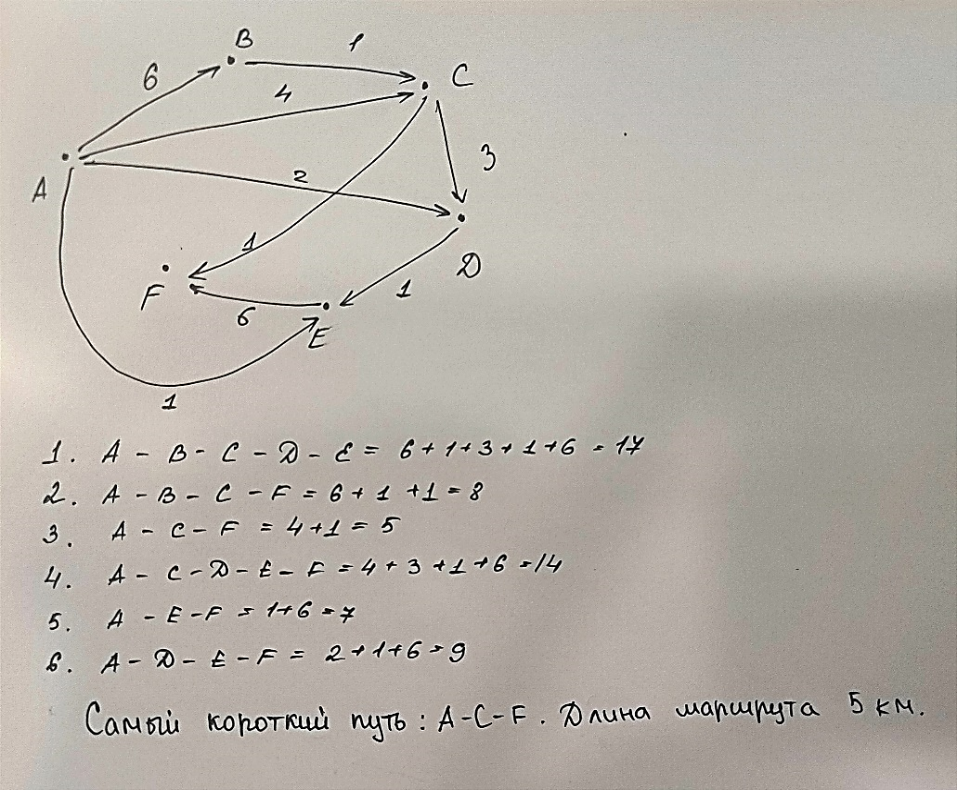 B
1
6
C
4
3
A
2
1
D
F
1
6
E
1
1. A - B - C - D - E = 6 + 1 + 3 + 1 + 6 = 17
2. A - B - C - F = 6 + 1 + 1 = 8
3. A - C - F = 4 + 1 = 5
4. A - C - D - E - F = 4 + 3 + 1 + 6 = 14
5. A - E - F = 1 + 6 = 7
6. A - D - E - F = 2 + 1 + 6 = 9
Самый короткий путь : A-C-F. Длина маршрута 5 км.